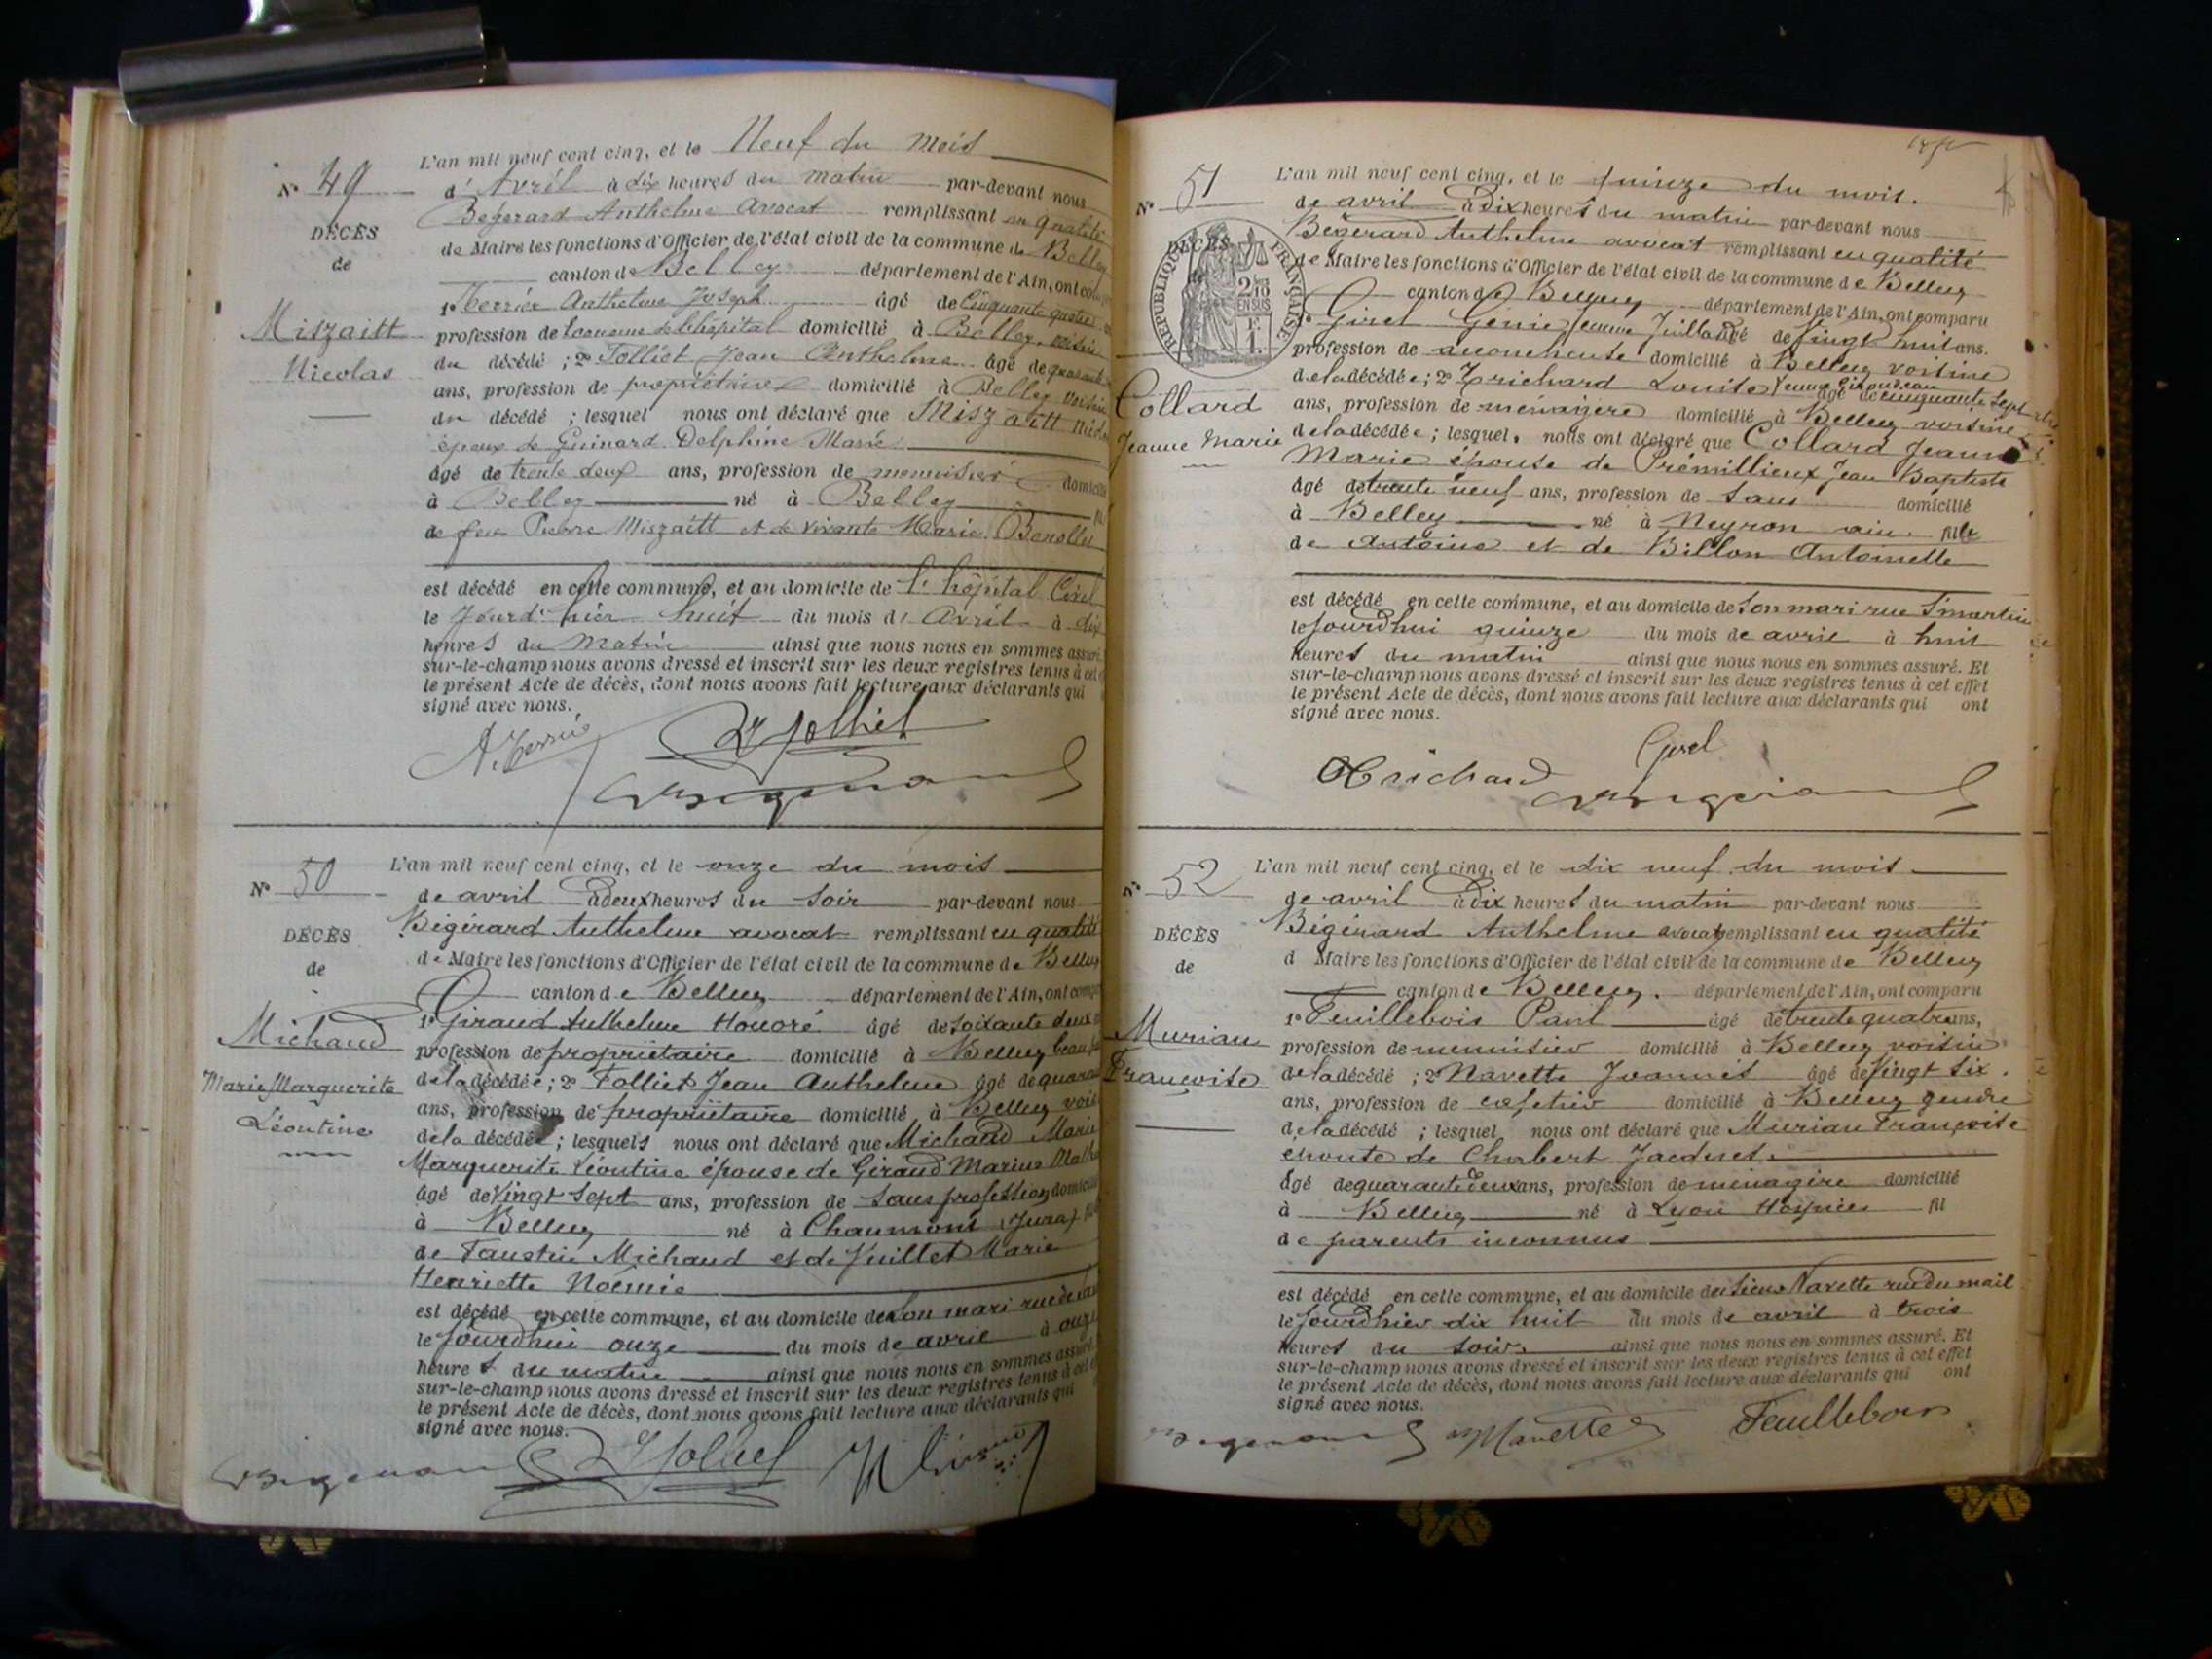 N° 49
DÉCÈS
de
Miszaitt
Nicolas
L'an mil neuf cent cinq, et le Neuf du mois
d'Avril à dix heures du matin par-devant nous
Bégérard Anthelme Avocat remplissant en qualité
de Maire les fonctions d'Officier de l'état civil de la commune de Belley
canton de Belley département de l'Ain, ont
1° Anthelme Joseph âgé de Cinquante quatre
profession de de l'hôpital domicilié à Belley, voisin
du décédé ; 2° Tolliet Jean Anthelme âgé de
ans, profession de propriétaire domicilié à Belley voisin
du décédé ; lesquel nous ont déclaré que Miszaitt
époux de Guinard Delphine Marie
âgé de trente deux ans, profession de menuisier domicilié
à Belley né à Belley
de feu Pierre Miszaitt et de vivante Marie
est décédé en cette commune, et au domicile de l'hôpital Civil
le Jourd'hier huit du mois d'Avril à dix
heures du Matin ainsi que nous nous en sommes assuré
sur-le-champ nous avons dressé et inscrit sur les deux registres tenus à cet
le présent Acte de décès, dont nous avons fait lecture aux déclarants qui
signé avec nous.
N° 50
DÉCÈS
de
Michaud
Marie Marguerite
Léontine
L'an mil neuf cent cinq, et le onze du mois
de avril à deux heures du soir par-devant nous
Bégérard Anthelme avocat remplissant en qualité
de Maire les fonctions d'Officier de l'état civil de la commune de Belley
canton de Belley département de l'Ain, ont
1° Giraud Anthelme Honoré âgé de soixante deux
profession de propriétaire domicilié à Belley beau
de la décédée ; 2° Tolliet Jean Anthelme âgé de
ans, profession de propriétaire domicilié à Belley
de la décédée ; lesquels nous ont déclaré que Michaud Marie
Marguerite Léontine épouse de Giraud Marius
âgé de vingt sept ans, profession de sans profession domicilié
à Belley né à Chaumont (Jura)
de Faustin Michaud et de Vuillet Marie
Henriette Noémie
est décédé en cette commune, et au domicile de son mari rue
le Jourd'hui onze du mois de avril à onze
heures du matin ainsi que nous nous en sommes assuré
sur-le-champ nous avons dressé et inscrit sur les deux registres tenus à cet
le présent Acte de décès, dont nous avons fait lecture aux déclarants qui
signé avec nous.
N° 51
DÉCÈS
RÉPUBLIQUE FRANÇAISE
2/10
EN SUS
1 F.
Collard
Jeanne Marie
L'an mil neuf cent cinq, et le quinze du mois
de avril à dix heures du matin par-devant nous
Bégérard Anthelme avocat remplissant en qualité
de Maire les fonctions d'Officier de l'état civil de la commune de Belley
canton de Belley département de l'Ain, ont comparu
1° Girel Génie femme Juilland âgé de vingt huit ans.
profession de domicilié à Belley voisine
de la décédée ; 2° Trichard Louise femme âgé de cinquante sept
ans, profession de ménagère domicilié à Belley voisine
de la décédée ; lesquel, nous ont déclaré que Collard Jeanne
Marie épouse de Prémillieux Jean Baptiste
âgé de trente neuf ans, profession de sans domicilié
à Belley né à Neyron ain. fille
de Antoine et de Billon Antoinette
est décédé en cette commune, et au domicile de son mari rue St martin
le Jourd'hui quinze du mois de avril à huit
heures du matin ainsi que nous nous en sommes assuré. Et
sur-le-champ nous avons dressé et inscrit sur les deux registres tenus à cet effet
le présent Acte de décès, dont nous avons fait lecture aux déclarants qui ont
signé avec nous.
Girel
Trichard
N° 52
DÉCÈS
de
Murian
Françoise
L'an mil neuf cent cinq, et le dix neuf du mois
de avril à dix heures du matin par-devant nous
Bégérard Anthelme avocat remplissant en qualité
d Maire les fonctions d'Officier de l'état civil de la commune de Belley
canton de Belley. département de l'Ain, ont comparu
1° Feuillebois Paul âgé de trente quatre ans,
profession de menuisier domicilié à Belley voisin
de la décédé ; 2° Navette Joannès âgé de vingt six
ans, profession de cafetier domicilié à Belley gendre
de la décédé ; lesquel nous ont déclaré que Murian Françoise
épouse de Chabert Jacques
âgé de quarante deux ans, profession de ménagère domicilié
à Belley né à Lyon Hospices fil
de parents inconnus
est décédé en cette commune, et au domicile du sieur Navette rue du mail
le Jourd'hier dix huit du mois de avril à trois
heures du soir ainsi que nous nous en sommes assuré. Et
sur-le-champ nous avons dressé et inscrit sur les deux registres tenus à cet effet
le présent Acte de décès, dont nous avons fait lecture aux déclarants qui ont
signé avec nous.
Navette Feuillebois